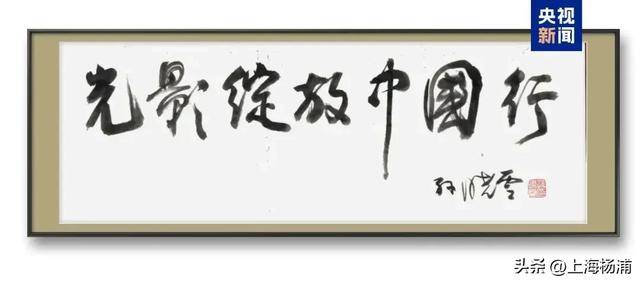 央视
新闻
光影绽放中國行
孙晓雲
头条 @上海杨浦